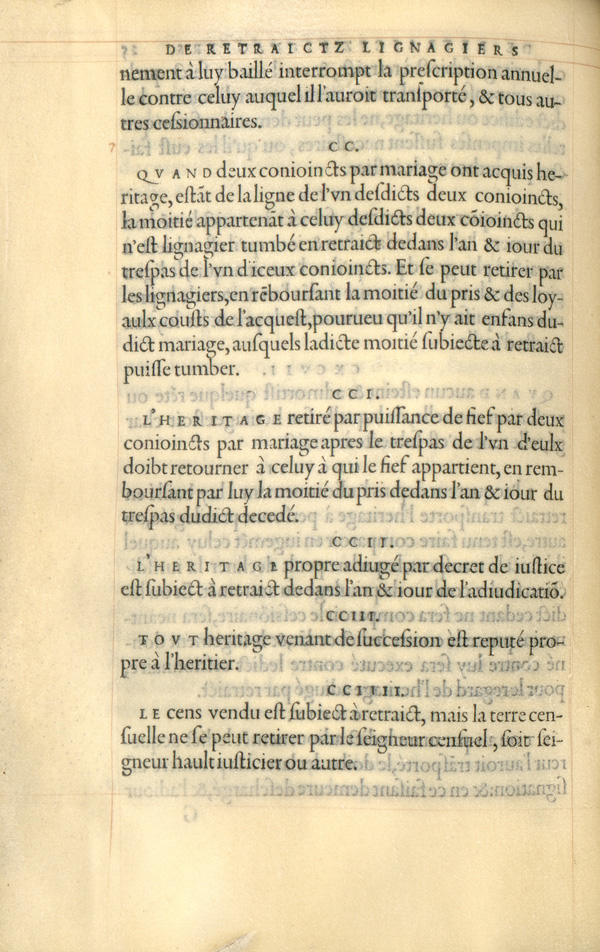 DE RETRAICTZ LIGNAGIERS
nement à luy baillé interrompt la preſcription annuel-
le contre celuy auquel il l'auroit tranſporté, & tous au-
tres ceſsionnaires.
CC.
QVAND deux conioincts par mariage ont acquis he-
ritage, eſtāt de la ligne de l'vn deſdicts deux conioincts,
la moitié appartenāt à celuy deſdicts deux cōioincts qui
n'eſt lignagier tumbé en retraict dedans l'an & iour du
treſpas de l'vn d'iceux conioincts. Et ſe peut retirer par
les lignagiers, en rēbourſant la moitié du pris & des loy-
aulx couſts de l'acqueſt, pourueu qu'il n'y ait enfans du-
dict mariage, auſquels ladicte moitié ſubiecte à retraict
puiſſe tumber.
CCI.
L'HERITAGE retiré par puiſſance de fief par deux
conioincts par mariage apres le treſpas de l'vn d'eulx
doibt retourner à celuy à qui le fief appartient, en rem-
bourſant par luy la moitié du pris dedans l'an & iour du
treſpas dudict decedé.
CCII.
L'HERITAGE propre adiugé par decret de iuſtice
eſt ſubiect à retraict dedans l'an & iour de l'adiudicatiō.
CCIII.
TOVT heritage venant de ſucceſsion eſt reputé pro-
pre à l'heritier.
CCIIII.
LE cens vendu eſt ſubiect à retraict, mais la terre cen-
ſuelle ne ſe peut retirer par le ſeigneur cenſuel, ſoit ſei-
gneur hault iuſticier ou autre.